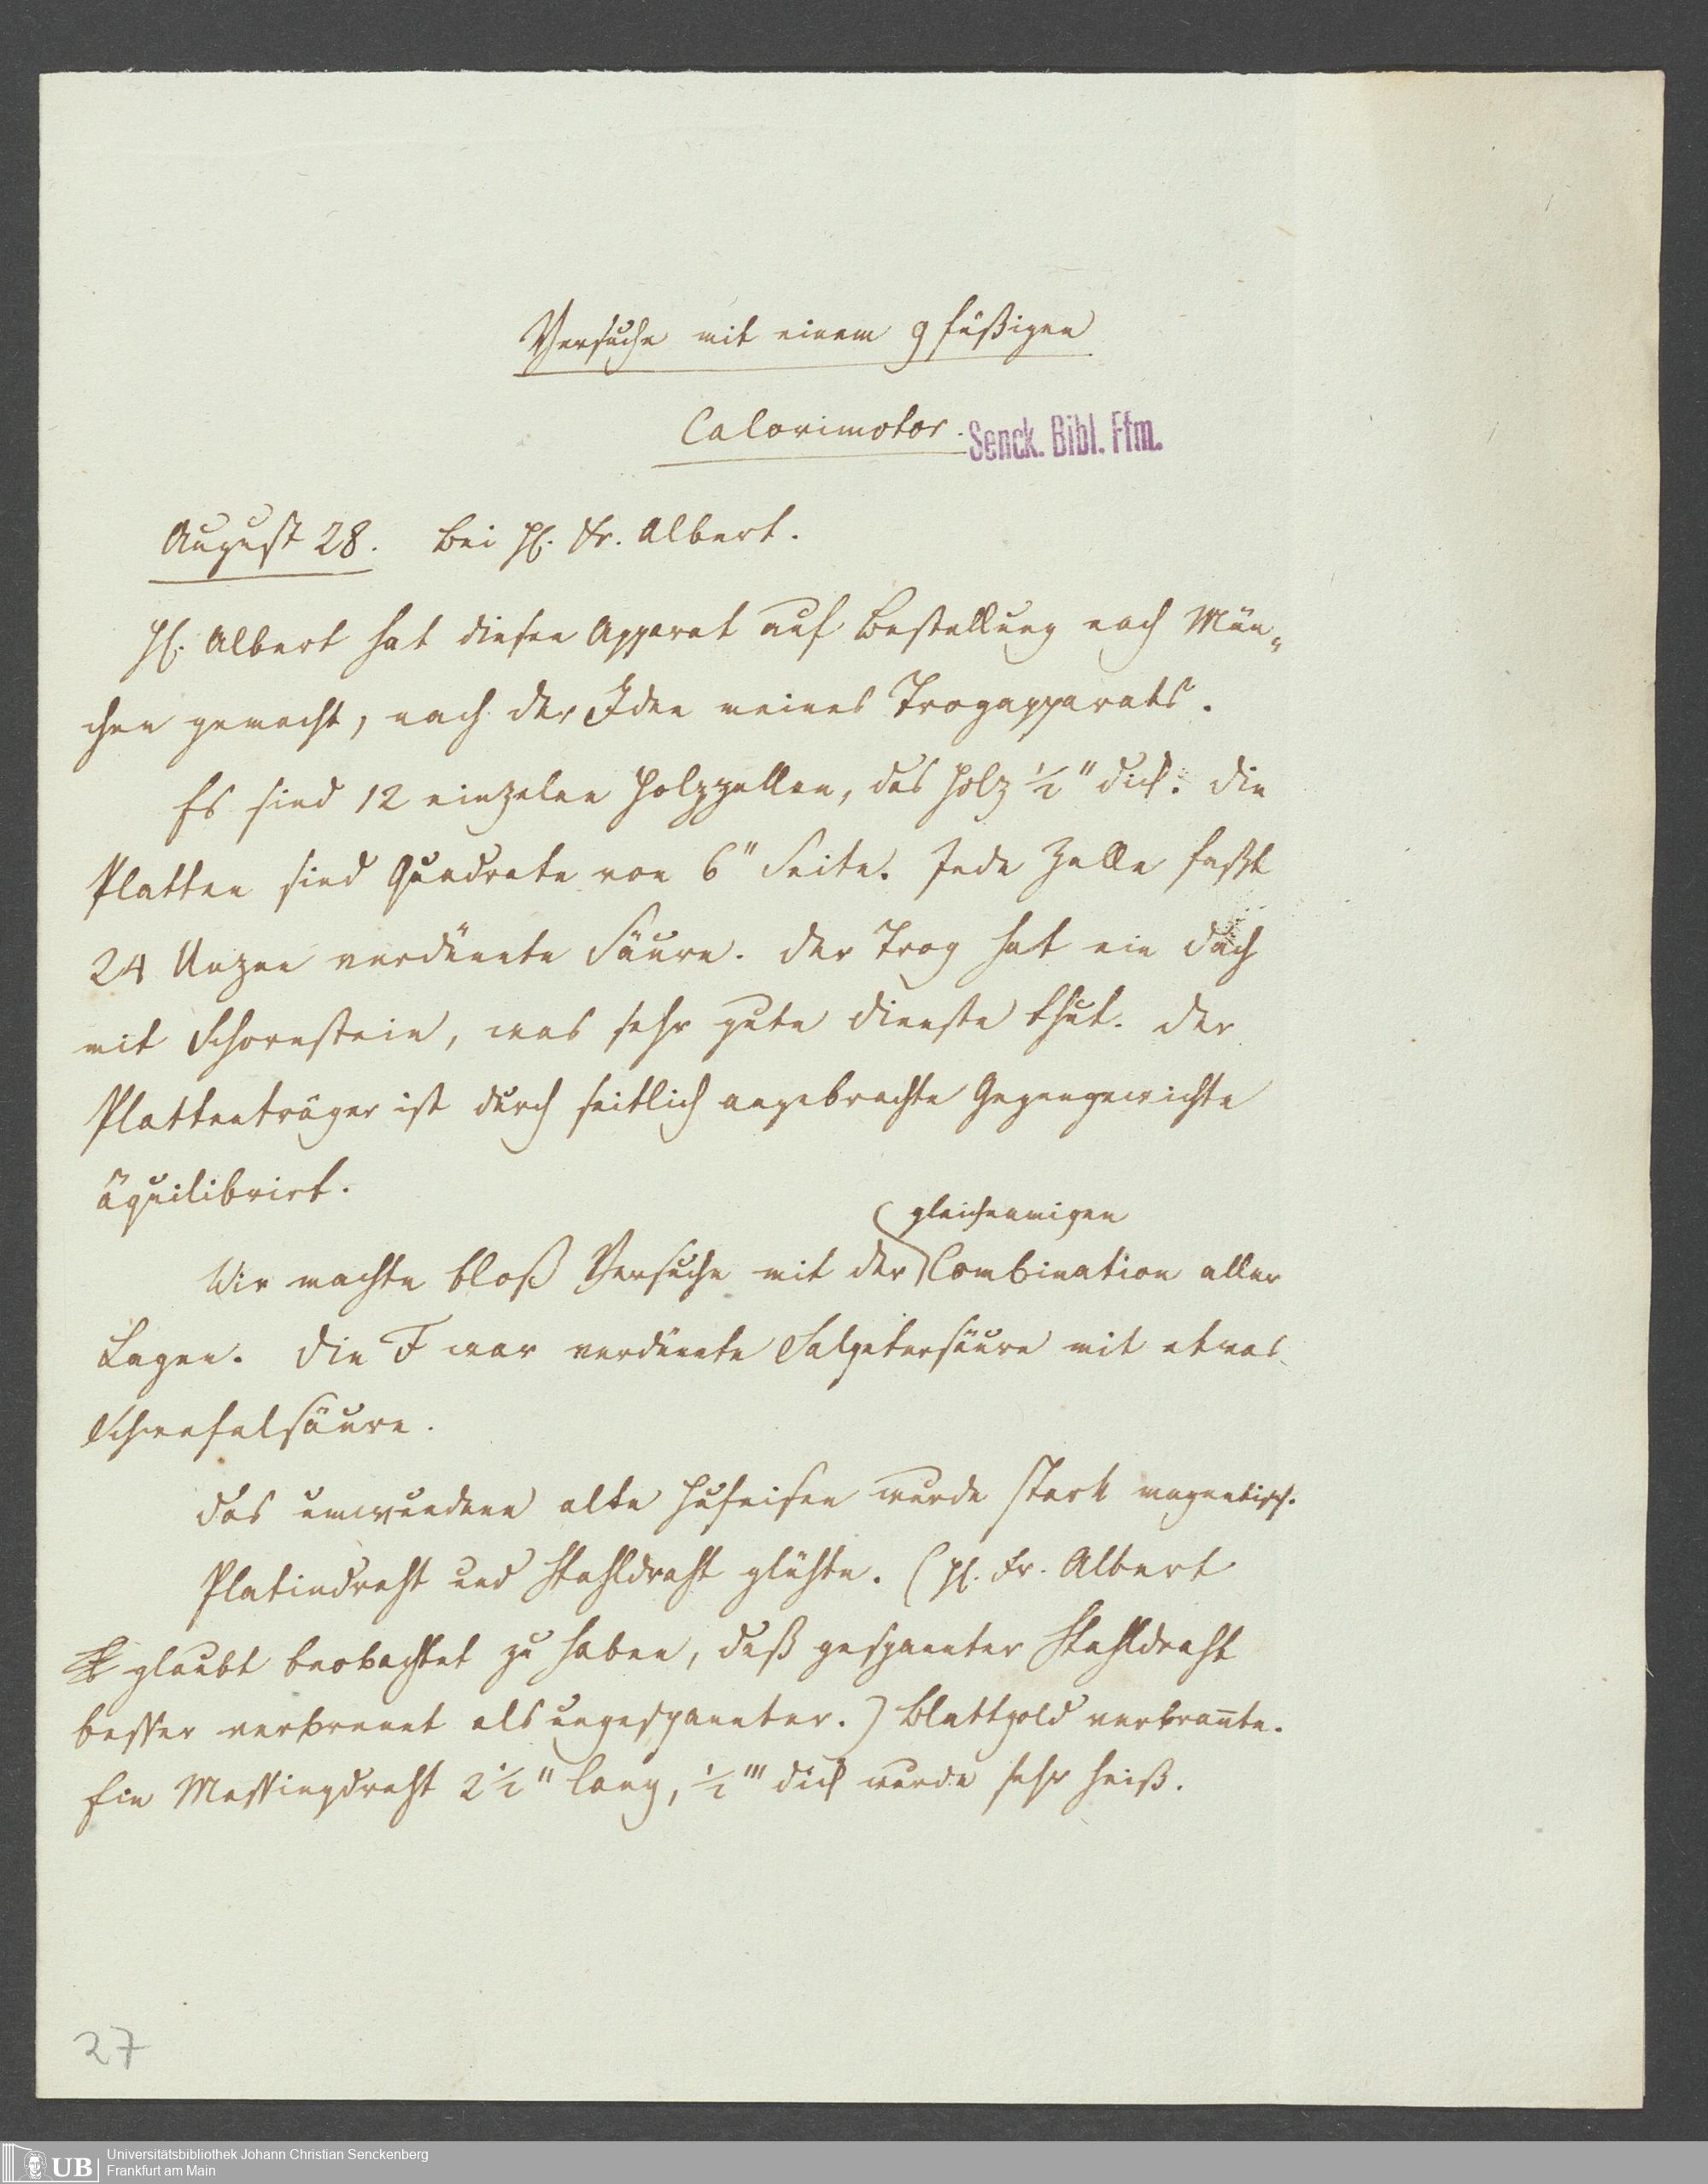 Versuche mit einem 9füßigen
Calorimotor.
Senck. Bibl. Ffm.
August 28. Bei H. Fr. Albert.
H. Albert hat diesen Apparat auf Bestellung nach Mün„
chen gemacht, nach der Idee meines Trogapparats.
Es sind 12 einzelne Holzzellen, das Holz ½" dick. Die
Platten sind Quadrate von 6" Seite. Jede Zelle faßt
24 Unzen verdünnte Säure. Der Trog hat ein Dach
mit Schornstein, was sehr gute Dienste thut. Der
Plattenträger ist durch seitlich angebrachte Gegengewichte
äquilibrirt.
gleichnamigen
Wir machte bloß Versuche mit der Combination aller
Lagen. Die F war verdünnte Salpetersäure mit etwas
Schwefelsäure.
Das umwundene alte Hufeisen wurde stark magnetisch.
Platindraht und Stahldraht glühte. (H. Fr. Albert
glaubt beobachtet zu haben, daß gespannter Stahldraht
besser verbrennt als ungespannter.) Blattgold verbrannte.
Ein Messingdraht 2½" lang, ½''' dick wurde sehr heiß.
27
UB
Universitätsbibliothek Johann Christian Senckenberg
Frankfurt am Main